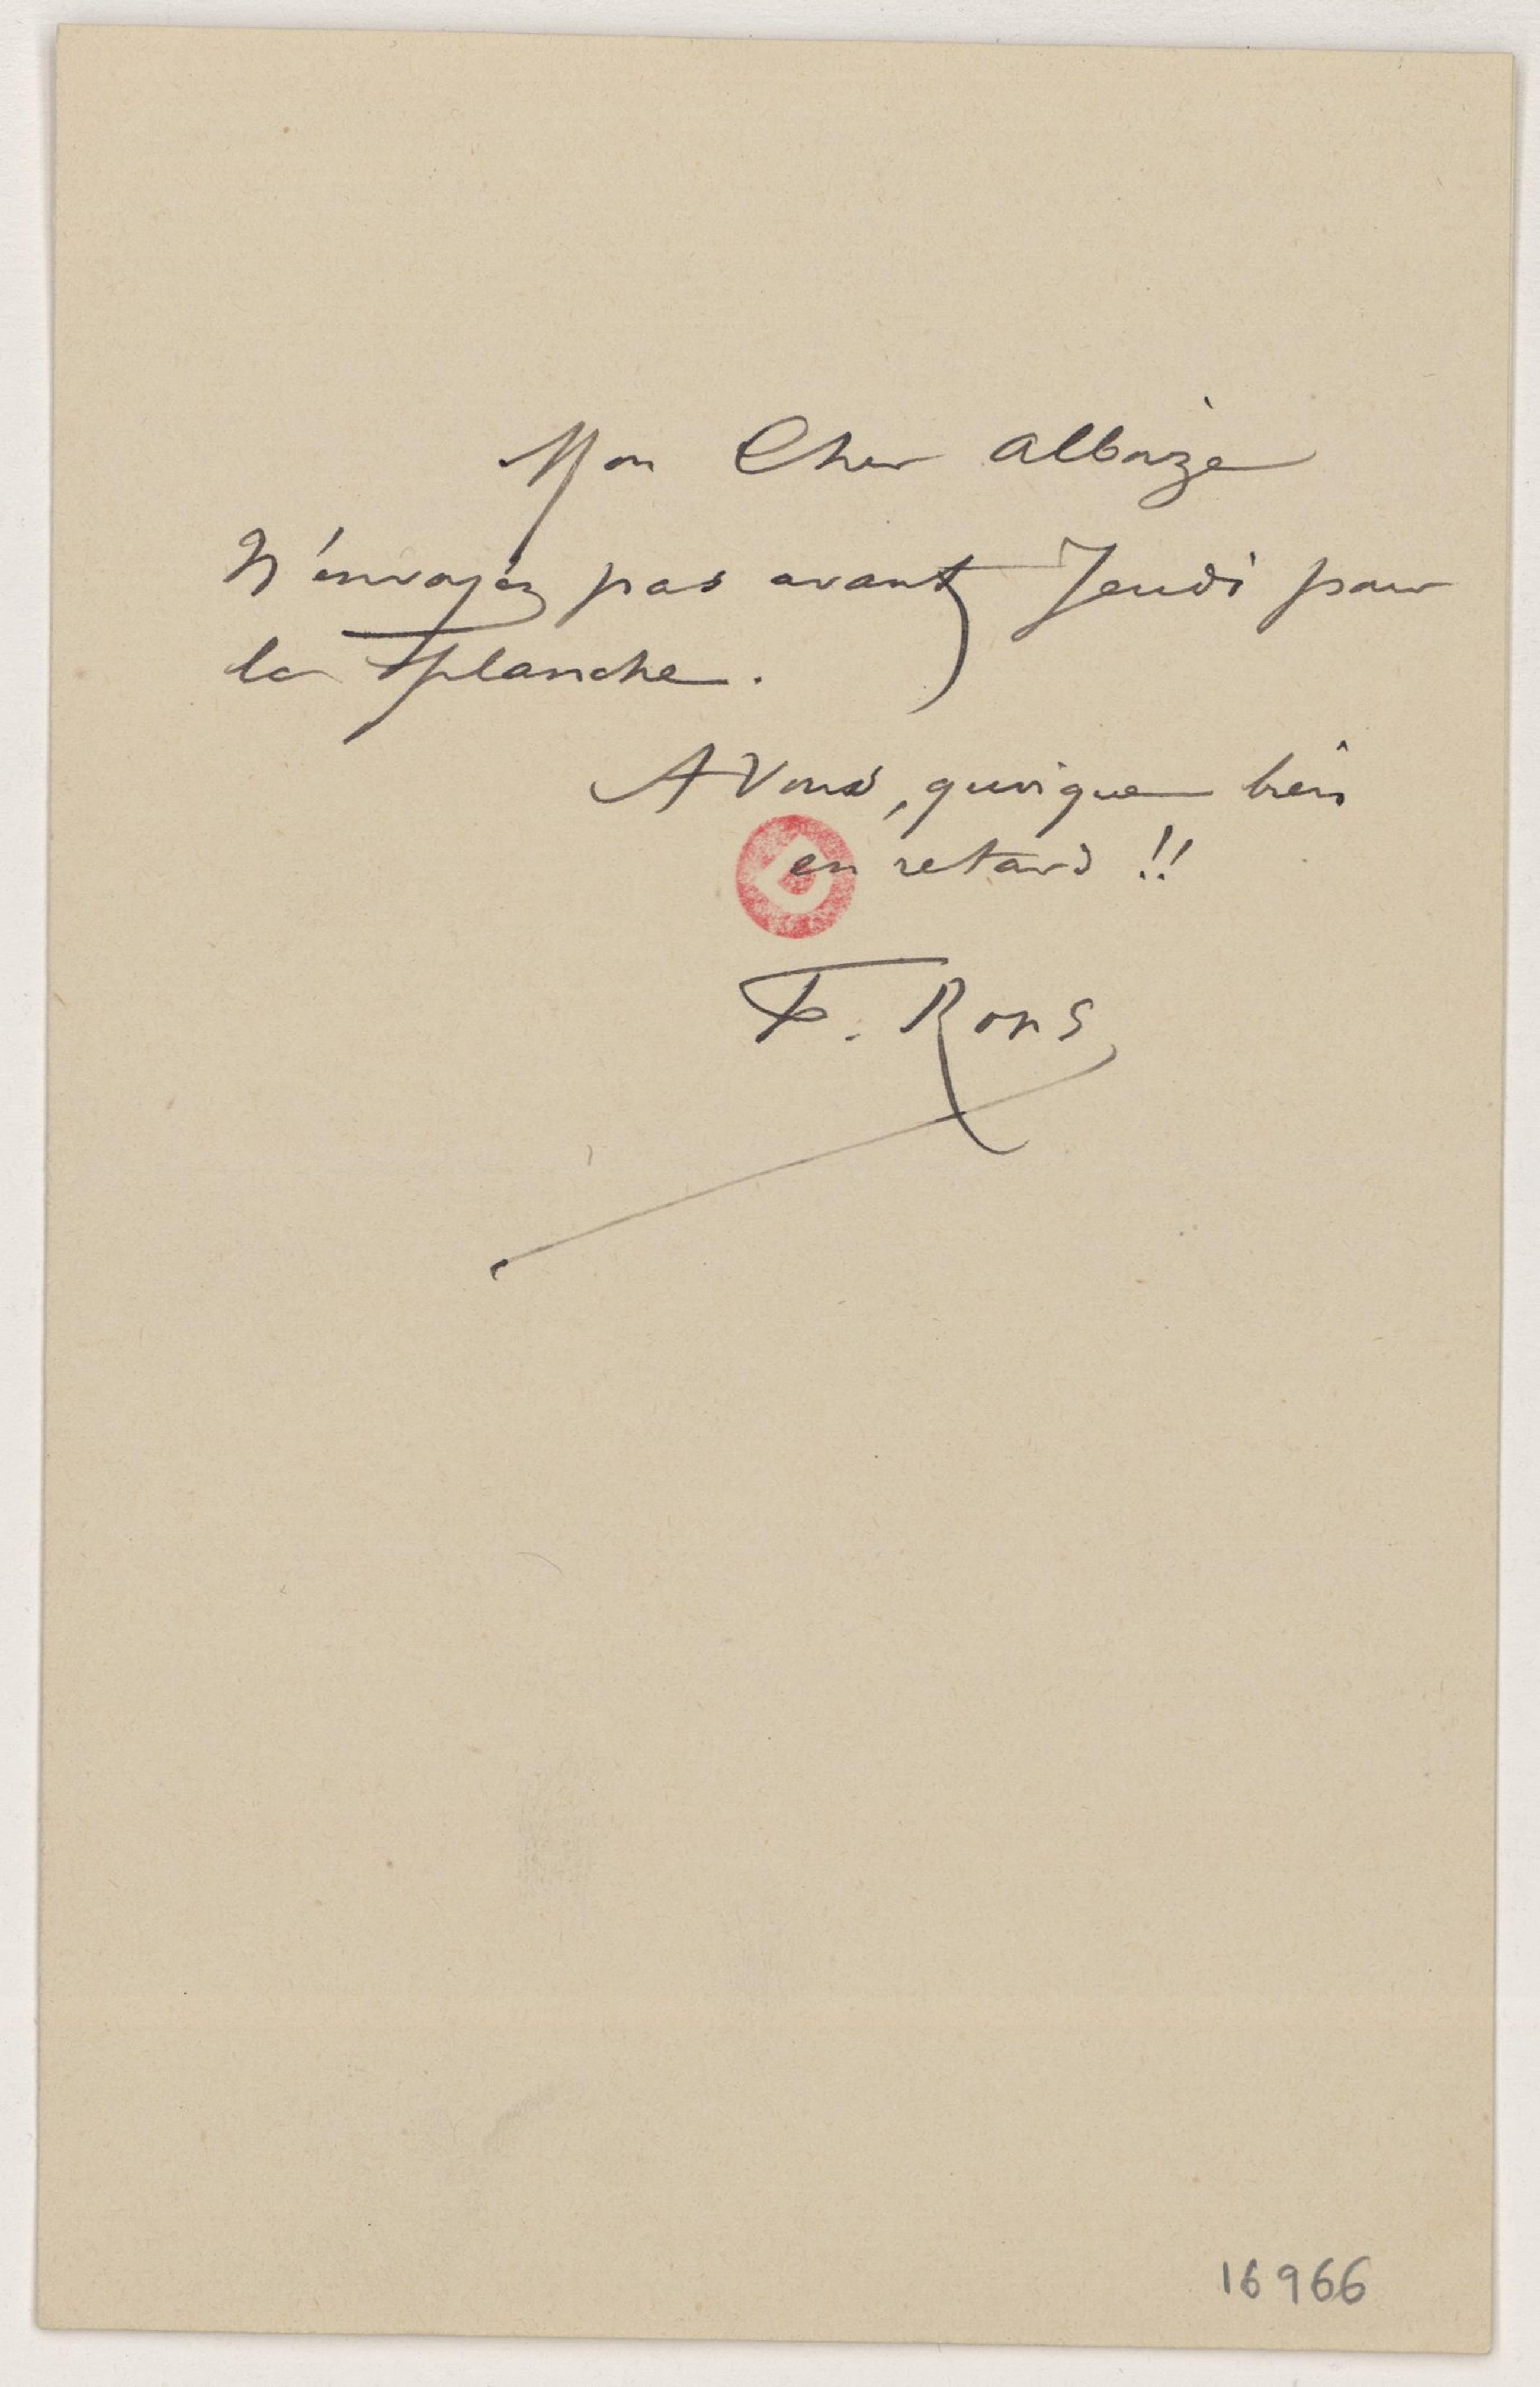 Mon Cher Alboize
N'envoyez pas avant Jeudi pour
la planche.
A Vous, quoique bien
en retard !!
F. Rops
16966